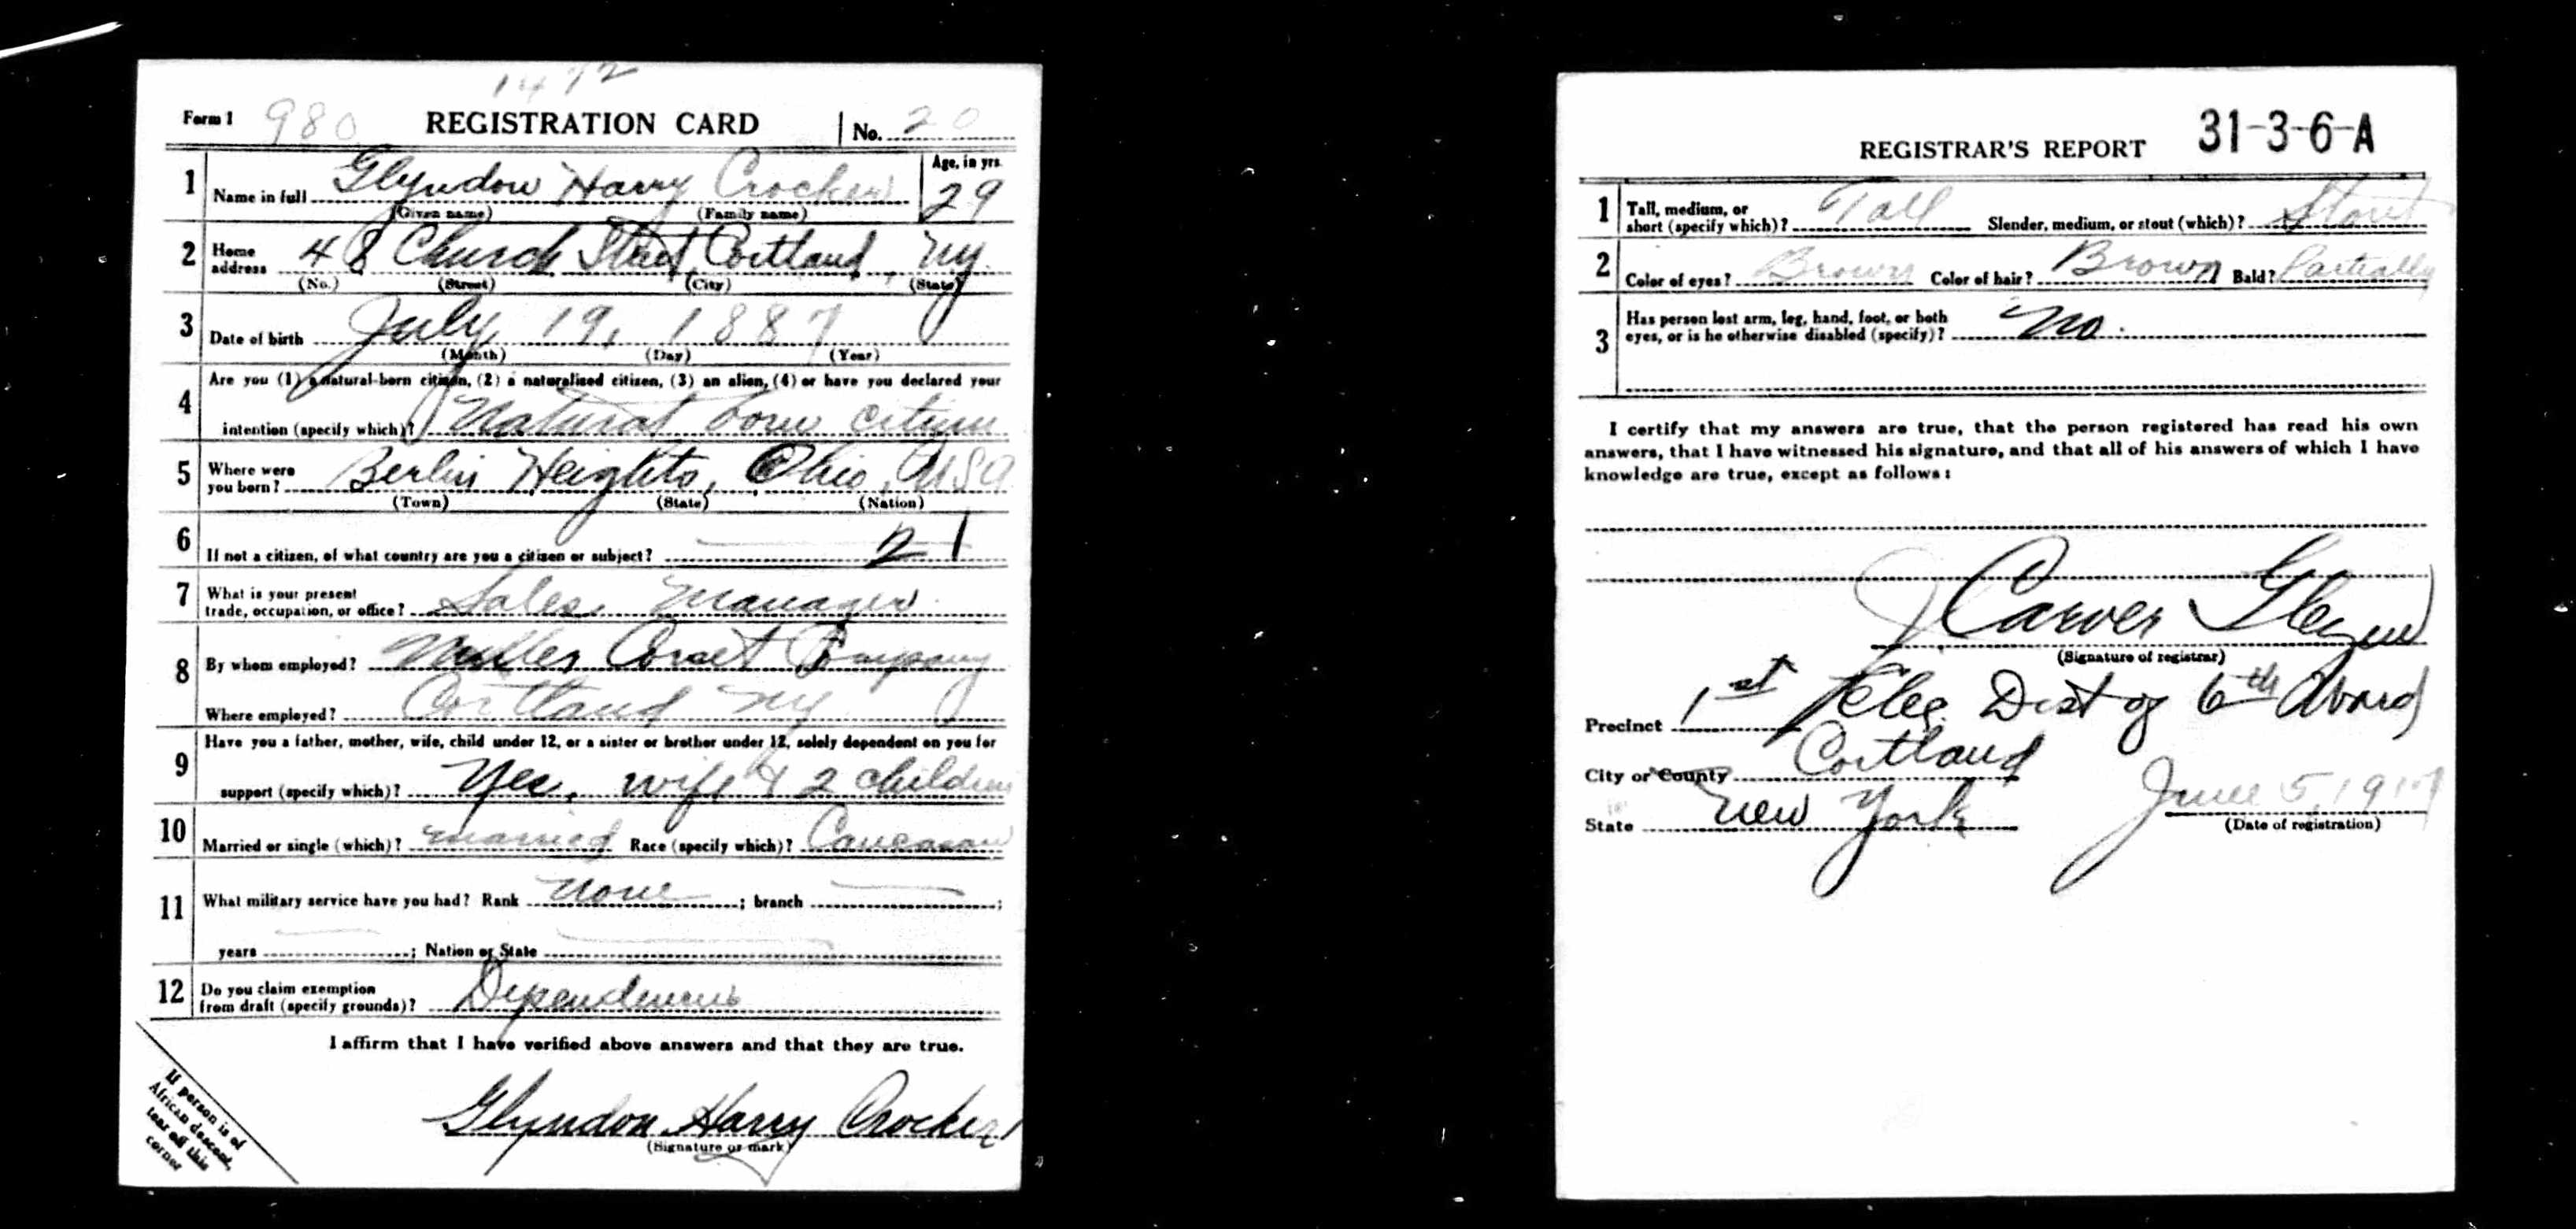 1472
Form 1 980 REGISTRATION CARD No. 20
1 Name in full Glyndon Harry Crocker Age, in yrs. 29
(Given name) (Family name)
2 Home address 48 Church Street, Cortland, NY.
(No.) (Street) (City) (State)
3 Date of birth July 19, 1887
(Month) (Day) (Year)
4 Are you (1) a natural-born citizen, (2) a naturalized citizen, (3) an alien, (4) or have you declared your
intention (specify which)? Natural born citizen
5 Where were you born? Berlin Heights, Ohio, USA
(Town) (State) (Nation)
6 If not a citizen, of what country are you a citizen or subject? 21
7 What is your present trade, occupation, or office? Sales Manager
8 By whom employed? Miller Corset Company
Where employed? Cortland NY
9 Have you a father, mother, wife, child under 12, or a sister or brother under 12, solely dependent on you for
support (specify which)? Yes, wife & 2 children
10 Married or single (which)? married Race (specify which)? Caucasian
11 What military service have you had? Rank none ; branch ;
years ; Nation or State
12 Do you claim exemption from draft (specify grounds)?
I affirm that I have verified above answers and that they are true.
Glyndon Harry Crocker
(Signature or mark)
If person is of
African descent,
tear off this
corner
REGISTRAR'S REPORT 31-3-6-A
1 Tall, medium, or short (specify which)? Tall Slender, medium, or stout (which)? Stout
2 Color of eyes? Brown Color of hair? Brown Bald? Partially
3 Has person lost arm, leg, hand, foot, or both eyes, or is he otherwise disabled (specify)? No.
I certify that my answers are true, that the person registered has read his own
answers, that I have witnessed his signature, and that all of his answers of which I have
knowledge are true, except as follows:
J Carver Glezen
(Signature of registrar)
Precinct 1st Elec. Dist of 6th Ward
City or County Cortland
State New York June 5, 1917
(Date of registration)